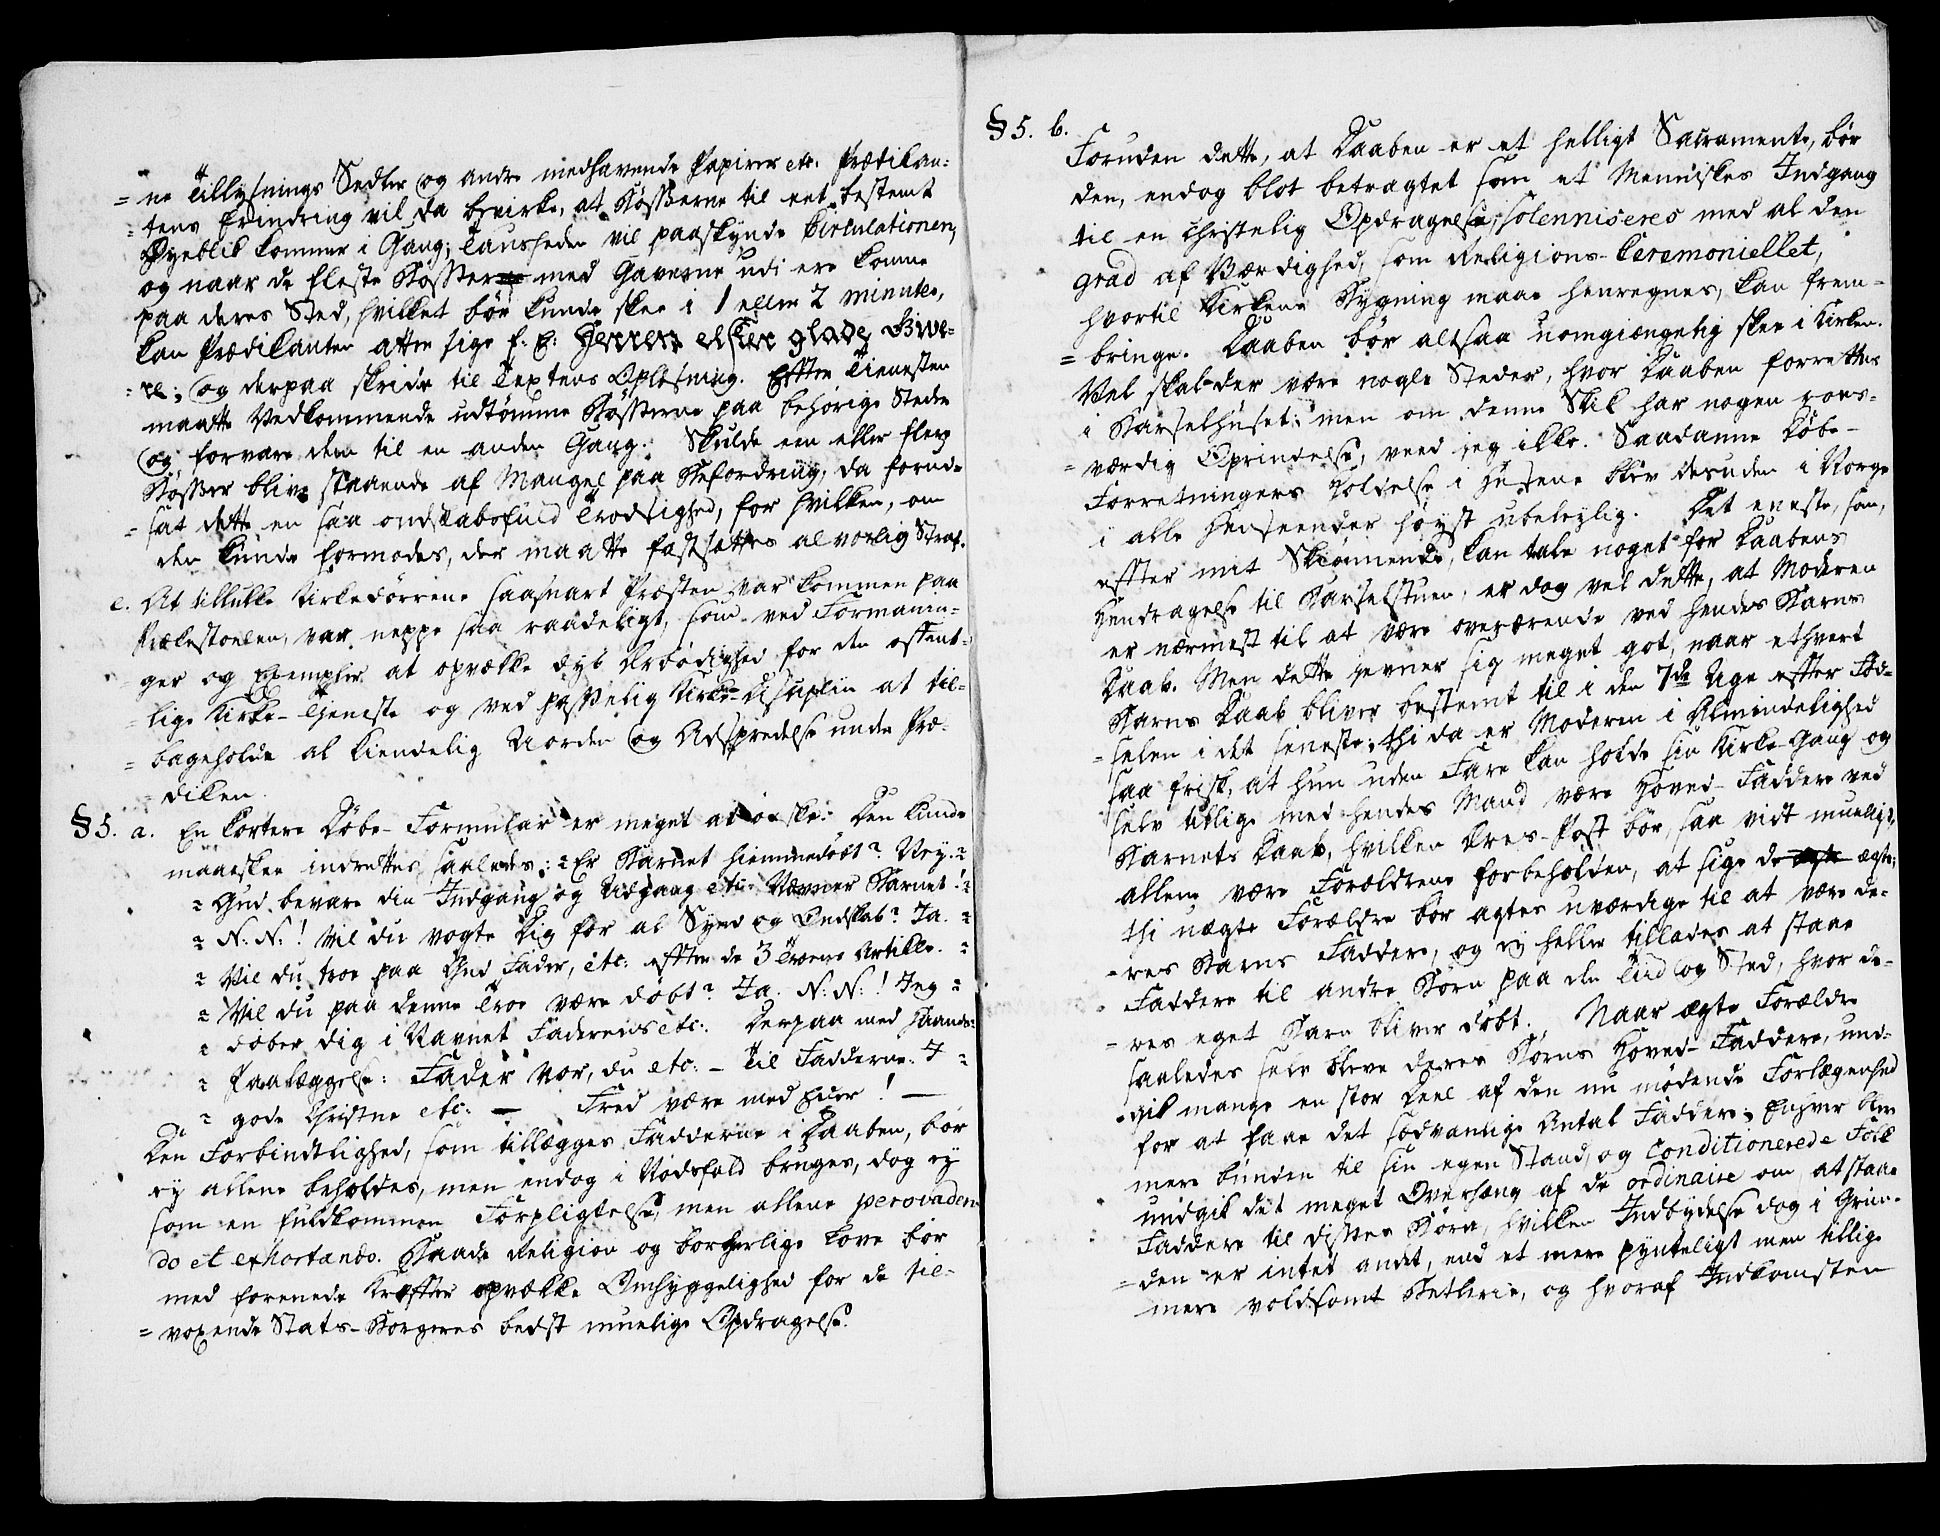 = ne Tillysnings Sedler og andre medhavende Papirer etc. Prædikan=
= tens Erindring vil da bevirke, at Bøsserne til eet bestemt
Øyeblik kommer i Gang; Tausheden vil paaskynde Cirkulationen,
og naar de fleste Bøsser med Gaverne udi ere komne
paa deres Sted, hvilket bør kunde skee i 1 eller 2 minuter,
kan Prædikanten atter sige f. E: Herren elsker glade Give=
= re; og derpaa skride til Textens Oplæsning. Efter Tienesten
maatte Vedkommende udtømme Bøsserne paa behørige Steder
og forvare dem til en anden Gang. Skulde een eller flere
Bøsser blive staaende af Mangel paa Befordring, da forud=
= sat dette en saa ondskabsfuld Trodsighed, for hvilken, om
den kunde formodes, der maatte fastsættes alvorlig Straf.
e. At tillukke Kirkedørrene saasnart Præsten var kommen paa
Prækestoelen, var neppe saa raadeligt, som ved Formanin=
= ger og Exempler at opvække dyb Ærbødighed for den offent=
= lige Kirke-Tjeneste og ved passelig Kirke-Disciplin at til=
= bageholde al kiendelig Uorden og Adspredelse under Præ=
= diken.
§ 5. a. En kortere Døbe-Formular er meget at ønske. Den kunde
maaeskee indrettes saaledes: = Er Barnet hiemmedøbt? Ney. =
= Gud bevare din Indgang og Udgang etc. Nævner Barnet! =
= N: N: ! Vil du vogte dig for al Synd og Ondskab? Ja. =
= Vil du troe paa Gud Fader, etc: efter de 3 Troens Artikle. =
= Vil du paa denne Troe være døbt? Ja. N: N: ! Jeg =
= døber dig i Navnet Faderens etc:. Derpaa med Haands=
= Paalæggelse: Fader vor, du etc: – Til Fadderne: I =
= gode Christne etc: — Fred være med Eder! —
Den Forbindtlighed, som tillægges Fadderne i Daaben, bør
ey allene beholdes, men endog i Nødsfald bruges, dog ey
som en fuldkommen Forpligtelse, men allene persvaden=
do et exhortando. Baade Religion og borgerlige Love bør
med forenede Kræfter opvække Omhyggelighed for de til=
= voxende Stats-Borgeres bedst muelige Opdragelse.
§ 5. b.
Foruden dette, at Daaben er et helligt Sacramente, bør
den, endog blot betragtet som et Menniskes Indgang
til en christelig Opdragelse, solenniseres med al den
grad af Værdighed, som Religions-Ceremoniellet,
hvortil Kirkens Bygning maae henregnes, kan frem=
= bringe. Daaben bør altsaa uomgiængelig skee i Kirken.
Vel skal der være nogle Steder, hvor Daaben forrettes
i Barselhuset: men om denne Skik har nogen roes=
= værdig Oprindelse, veed jeg ikke. Saadanne Døbe-
Forretningers Holdelse i Husene blev desuden i Norge
i alle Henseender høyst ubeleylig. Det eneste, som,
efter mit Skiønnende, kan tale noget for Daabens
Hendragelse til Barselstuen, er dog vel dette, at Moderen
er nærmest til at være overværende ved hendes Barns
Daab. Men dette jevner sig meget got, naar ethvert
Barns Daab bliver bestemt til i den 7de Uge efter Fød=
= selen i det seneste; thi da er Moderen i Almindelighed
saa frisk, at hun uden Fare kan holde sin Kirke-Gang og
selv tillige med hendes Mand være Hoved-Faddere ved
Barnets Daab, hvilken Æres-Post bør, saa vidt mueligt,
allene være Forældrene forbeholden, at sige de ægte;
thi uægte Forældre bør agtes uværdige til at være de=
= res Barns Faddere, og ey heller tillades at staae
Faddere til andre Børn paa den Tiid og Sted, hvor de=
= res eget Barn bliver døbt. Naar ægte Forældre
saaledes selv bleve deres Børns Hoved-Faddere, und=
gik mange en stor Deel af den nu mødende Forlegenhed
for at faae det sædvanlige Antal Faddere; Enhver blev
mere bunden til sin egen Stand, og Conditionerede Folk
undgik det meget Overhæng af de ordinaire om at staae
Faddere til disses Børn, hvilken Indbydelse dog i Grun=
= den er intet andet, end et mere pynteligt men tillige
mere voldsomt Betlerie, og hvoraf Indkomsten